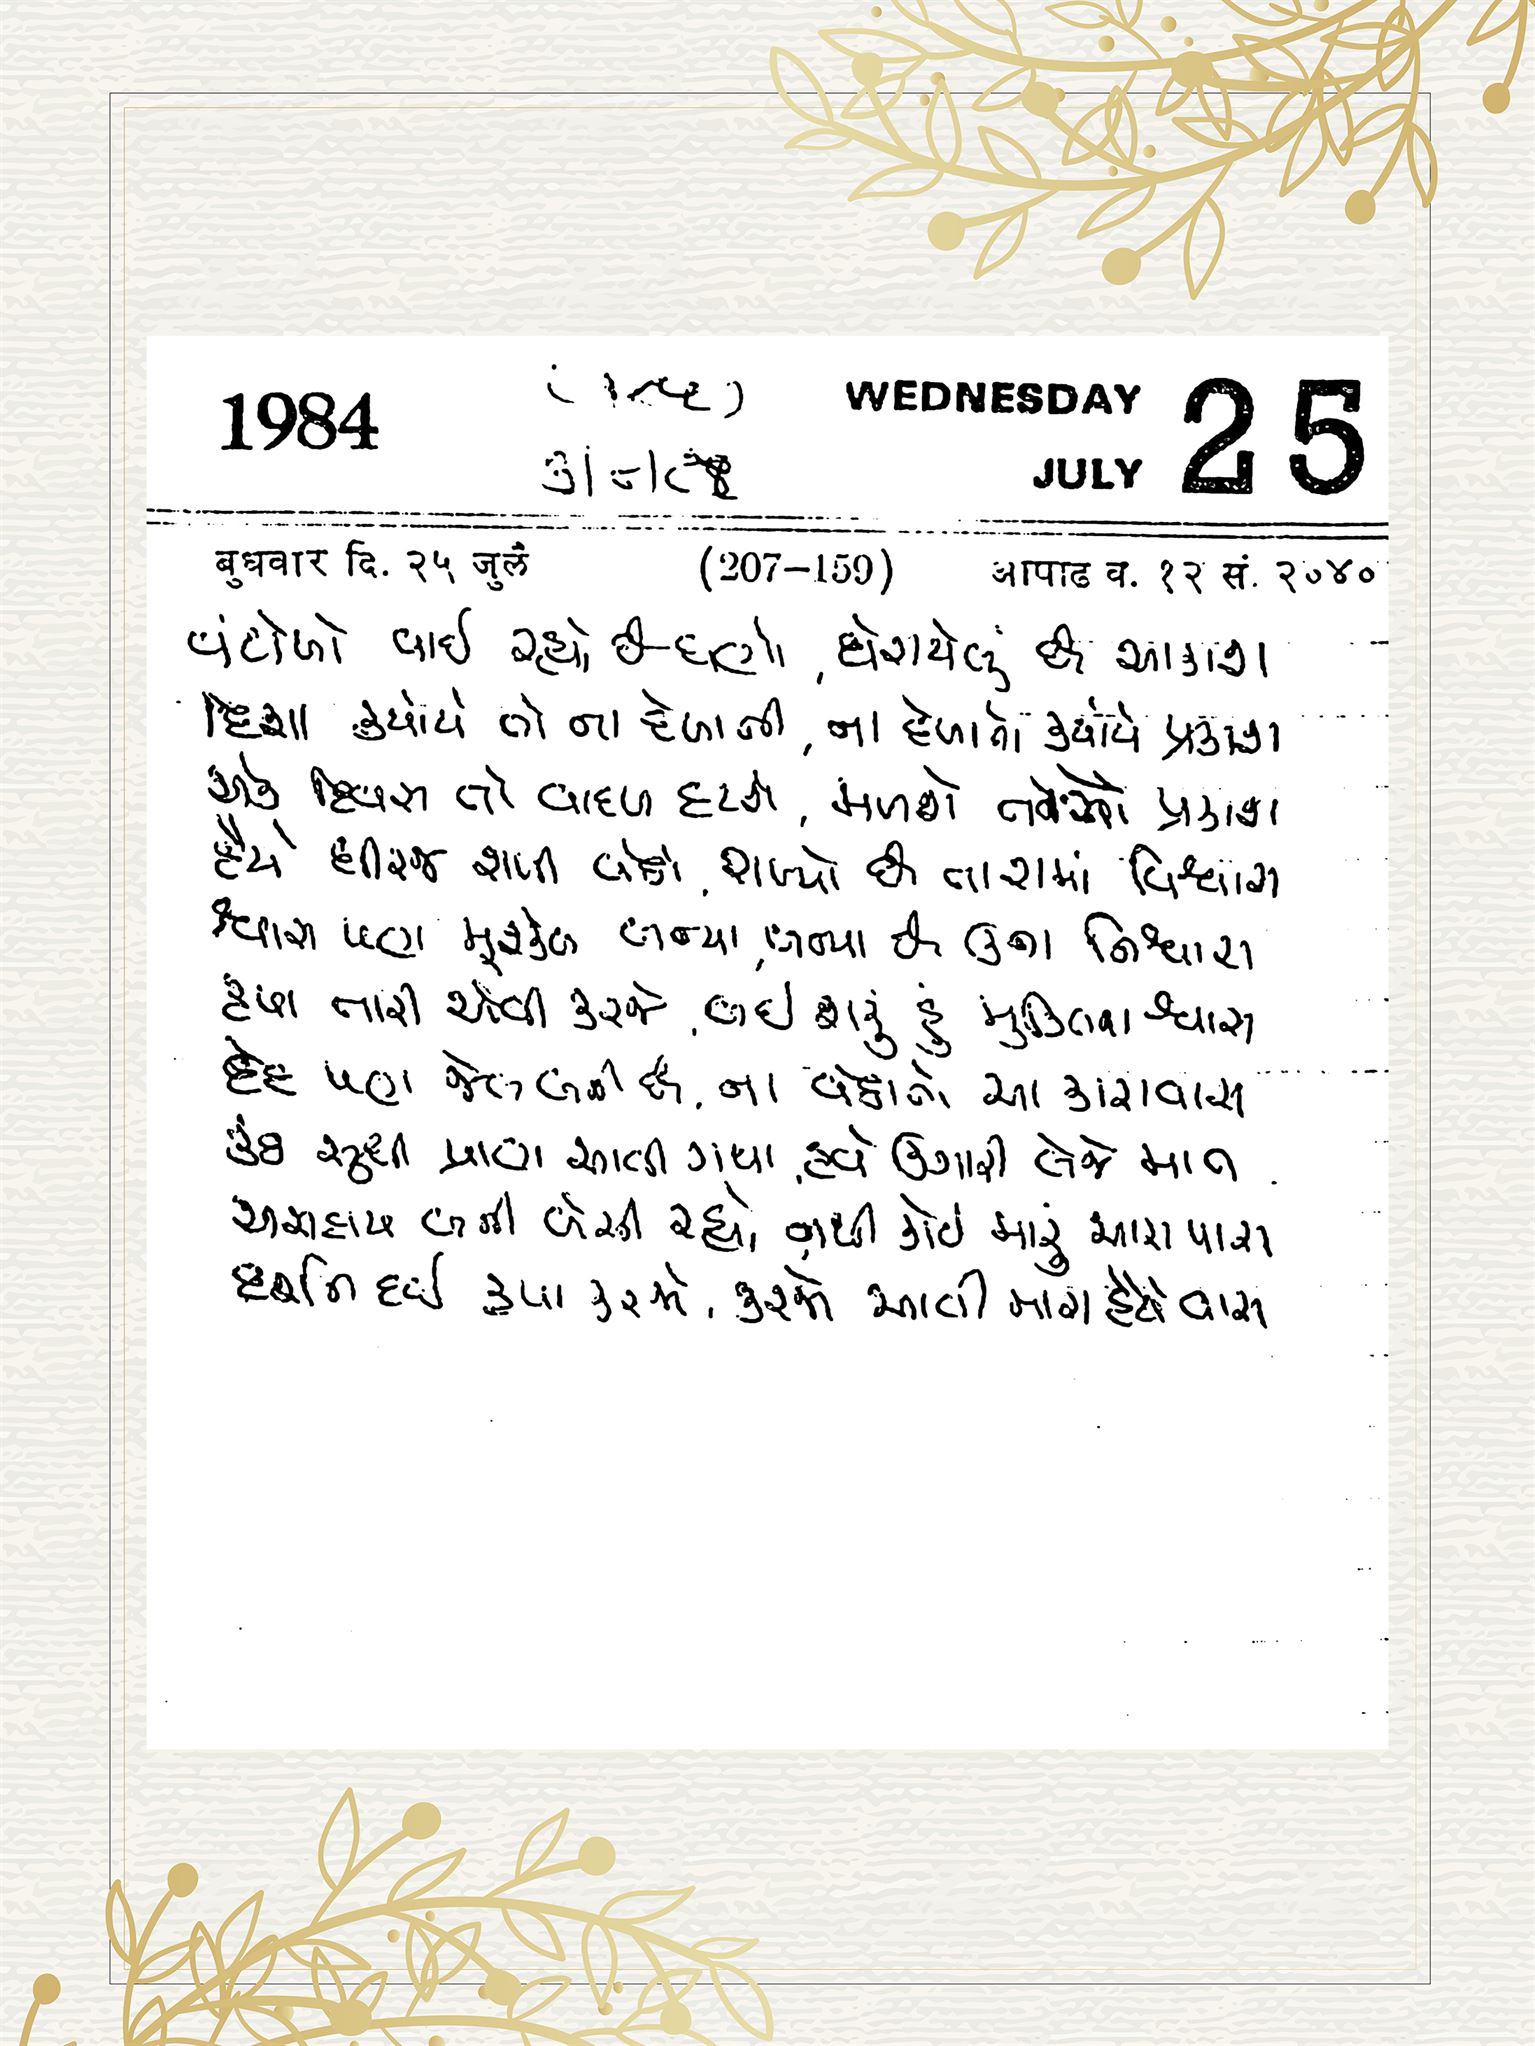 1984
WEDNESDAY
JULY
25
बुधवार दि. २५ जुलै
(207-159)
आषाढ व. १२ सं. २०४०
વંટોળો વાઈ રહ્યો છે ઘણો, ઘેરાયેલું છે આકાશ
દિશા ક્યાંયે તો ના દેખાતી, ના દેખાતો ક્યાંયે પ્રકાશ
એક દિવસ તો વાદળ હટશે, મળશે પ્રકાશ
હૈયે ધીરજ રાખી બેઠો, રાખ્યો છે તારામાં વિશ્વાસ
શ્વાસ પણ મુશ્કેલ બન્યા, બન્યા છે ઉના નિશ્વાસ
કૃપા તારી એવી કરજે, લઈ શકું હું મુક્તિના શ્વાસ
દેહ પણ જેલ બની છે, ના વેઠાતો આ કારાવાસ
કંઠ સુધી પ્રાણ આવી ગયા, હવે ઉગારી લેજે માત
અસહાય બની બેસી રહ્યો, નથી કોઈ મારું આસપાસ
દર્શન દઈ કૃપા કરજે, કરજે આવી મારા હૈયે વાસ